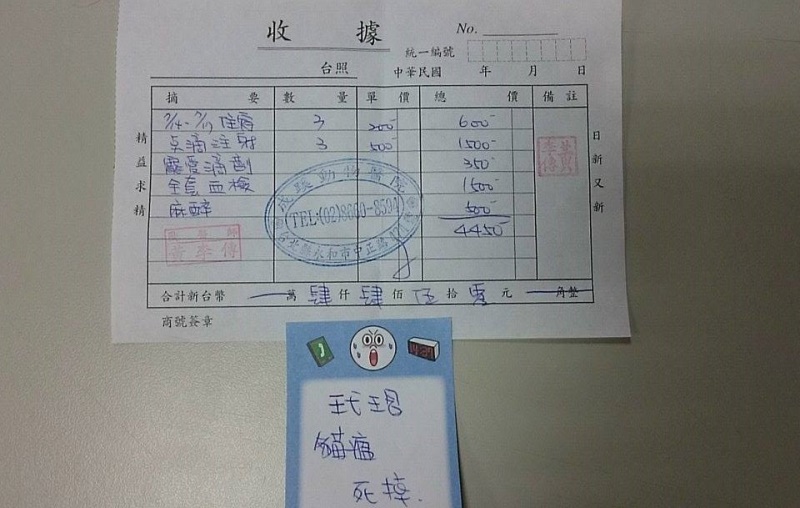 收 據
No.
統一編號
台照
中華民國 年 月 日
摘 要 數 量 單 價 總 價 備 註
住院 3 200 600
點滴注射 3 500 1500
寵愛滴劑 350
全套血檢 1500
麻醉 500
4450
精益求精
日新又新
動物醫院
TEL:(02)8660-8591
台北縣永和市中正路
合計新台幣 萬 肆 仟 肆 佰 伍 拾 零 元 角整
商號簽章
貓瘟
死掉.